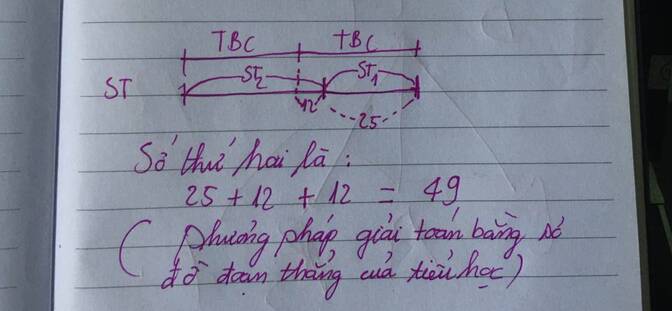 TBC TBC
ST ST2 ST1
12 25
Số thứ hai là :
25 + 12 + 12 = 49
( phương pháp giải toán bằng sơ
đồ đoạn thẳng của tiểu học )